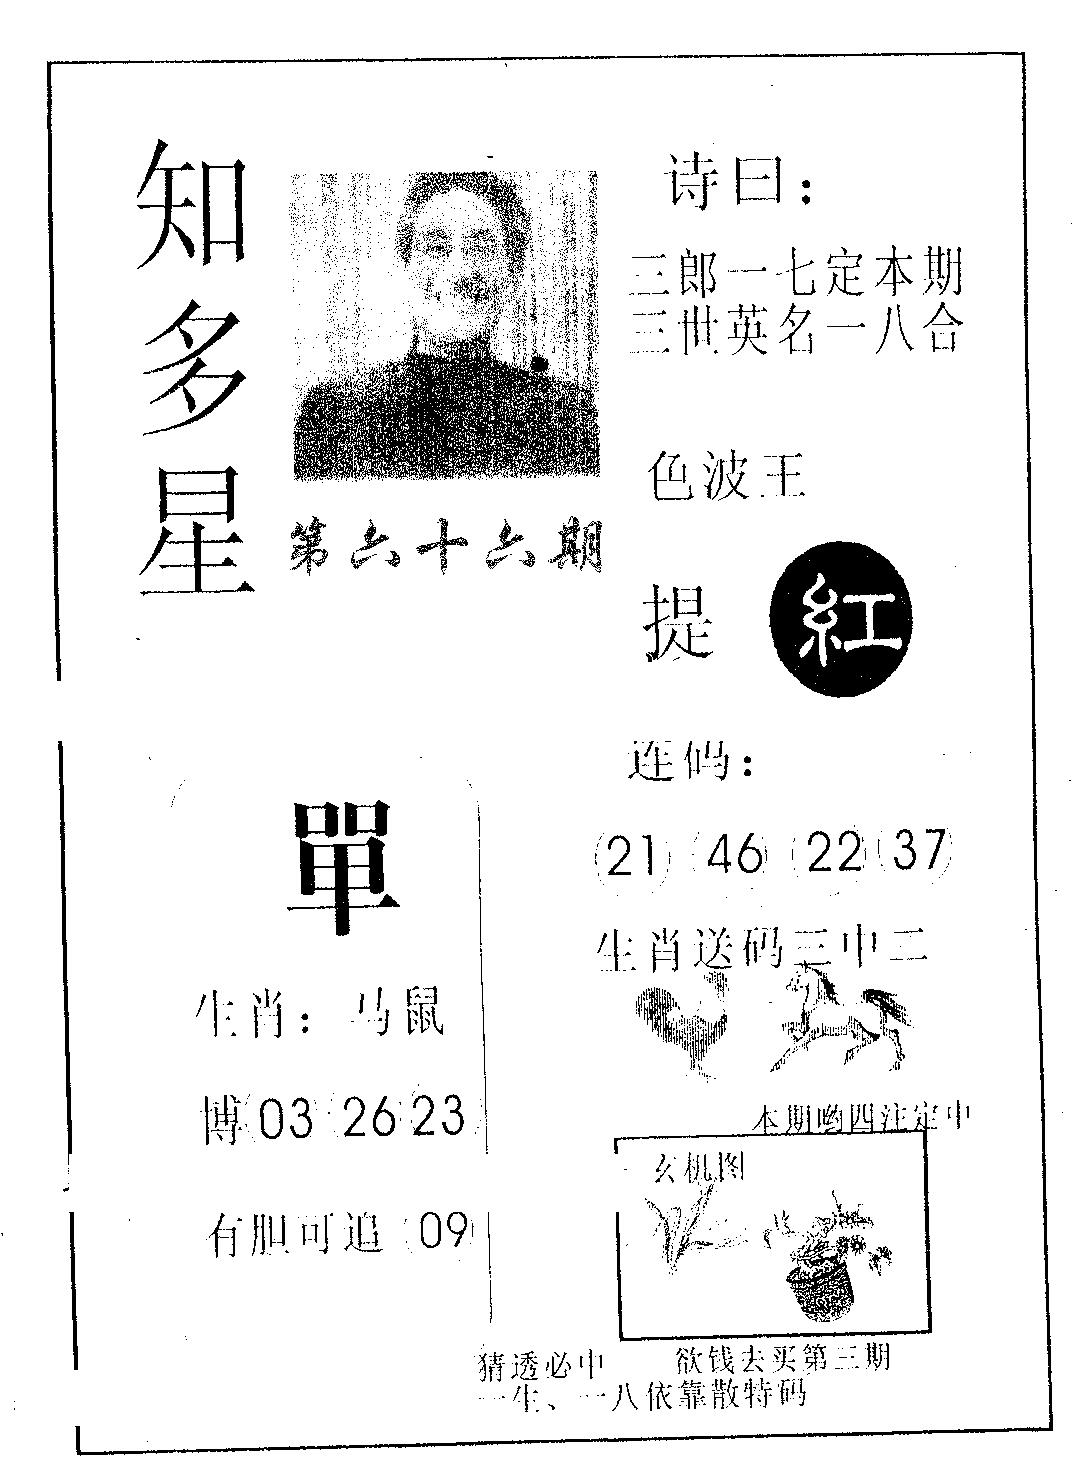 知多星
第六十六期
诗曰：
三郎一七定本期
三世英名一八合
色波王
提 紅
單
生肖：马鼠
博 03 26 23
有胆可追 09
连码：
21 46 22 37
生肖送码三中二
本期哟四注定中
玄机图
猜透必中 欲钱去买第三期
一生、一八依靠散特码